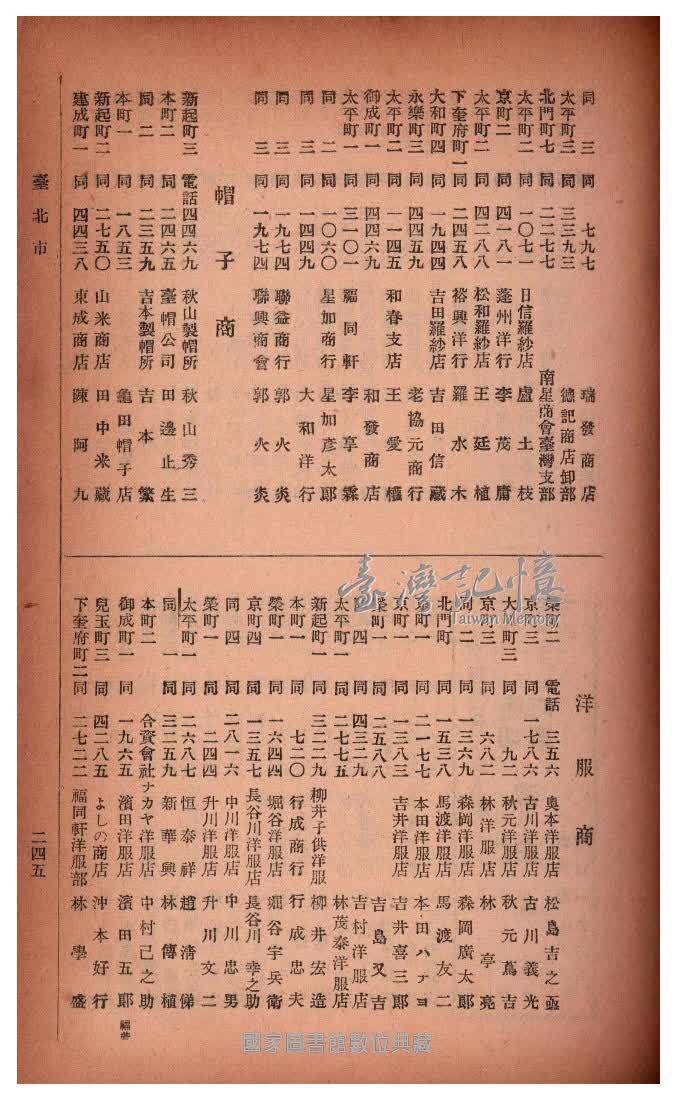 同　三　同　七九七　瑞發商店
太平町三　同　三三九三　德記商店卸部
北門町七　同　二二七七　南星商會臺灣支部
太平町二　同　一〇七一　日信羅紗店　盧土枝
京町二　同　四一八一　蓬州洋行　李茂庸
太平町二　同　四二八八　松和羅紗店　王廷植
下奎府町一　同　二四五八　裕興洋行　羅水木
大和町四　同　一九四四　吉田羅紗店　吉田信藏
永樂町三　同　四四五九　老協元商行
太平町二　同　一一四五　和春支店　王愛
御成町一　同　四四六九　和發商店
太平町一　同　三一〇一　福同軒　李享霖
同　二　同　一〇六〇　星加商行　星加彥太郎
同　三　同　一四四九　大和洋行
同　三　同　一九七四　聯益商行　郭火炎
同　三　同　一九七四　聯興商會　郭火炎
帽子商
新起町三　電話　四四六九　秋山製帽所　秋山秀三
本町二　同　二四六五　臺帽公司　田邊止生
同　二　同　二三五九　吉本製帽所　吉本繁
本町一　同　一八五三　龜田帽子店
新起町二　同　二七五〇　山米商店　田中米藏
建成町一　同　四四三八　東成商店　陳阿九
洋服商
榮町二　電話　三五六　奧本洋服店　松島吉之亟
京町三　同　一七八六　古川洋服店　古川義光
大和町三　同　九二　秋元洋服店　秋元蔦吉
京町三　同　六八二　林洋服店　林亭亮
同　二　同　一三六九　森岡洋服店　森岡廣太郎
北門町　同　一五三八　馬渡洋服店　馬渡友二
京町一　同　二一七七　本田洋服店　本田ハチヨ
京町一　同　一三八三　吉井洋服店　吉井喜三郎
榮町一　同　二五八八　吉島又吉
同　四　同　四三二九　吉村洋服店
太平町一　同　二七七五　林茂泰洋服店
新起町一　同　三二二九　柳井子供洋服　柳井宏造
本町一　同　七二〇　行成商行　行成忠夫
榮町一　同　一六四四　堀谷洋服店　堀谷宇兵衛
京町四　同　一三五七　長谷川洋服店　長谷川幸之助
同　四　同　二八一六　中川洋服店　中川忠男
榮町一　同　二四四　升川洋服店　升川文二
太平町一　同　二六八七　恒泰祥　趙清俤
同　一　同　三二五九　新華興　林傳植
本町二　合資會社ナカヤ洋服店　中村己之助
御成町一　同　一九六五　濱田洋服店　濱田五郎
兒玉町三　同　四二八五　よしの商店　沖本好行
下奎府町二　同　二七二二　福同軒洋服部　林學盛
臺北市
二四五
臺灣記憶
Taiwan Memory
國家圖書館數位典藏